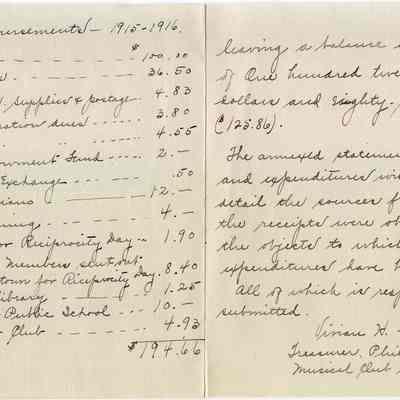 ursements — 1915-1916.
$100.00
36.50
Supplies & postage 4.83
ration dues 3.80
4.55
owment Fund 2.—
Exchange .50
ianos 12.—
4.—
or Reciprocity Day 1.90
Members sent out
town for Reciprocity Day. 8.40
library 1.25
Public School 10.—
Club 4.93
$194.66
leaving a balance
of One hundred twe
dollars and Eighty.
($125.86).
The annexed stateme
and expenditures wi
detail the sources f
the receipts were ob
the objects to which
expenditures have b
All of which is resp
submitted.
Vivian H.
Treasurer, Phil
Musical Club